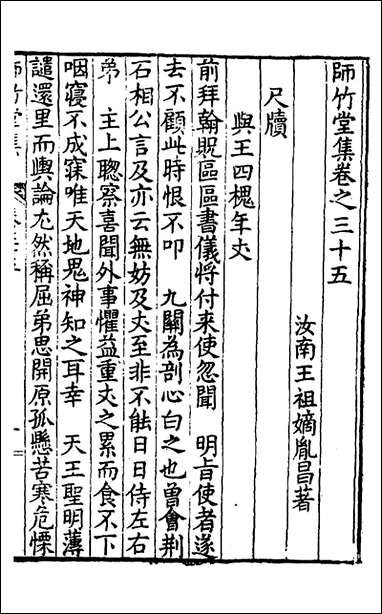 師竹堂集卷之三十五
汝南王祖嫡胤昌著
尺牘
與王四槐年丈
前拜翰貺區區書儀將付来使忽聞　明旨使者遂
去不顧此時恨不叩　九闗為剖心白之也曾會荆
石相公言及亦云無妨及丈至非不能日日侍左右
弟　主上聦察喜聞外事懼益重丈之累而食不下
咽寢不成寐唯天地鬼神知之耳幸　天王聖明薄
譴還里而輿論尢然稱屈弟思開原孤懸苦寒危慄
師竹堂集